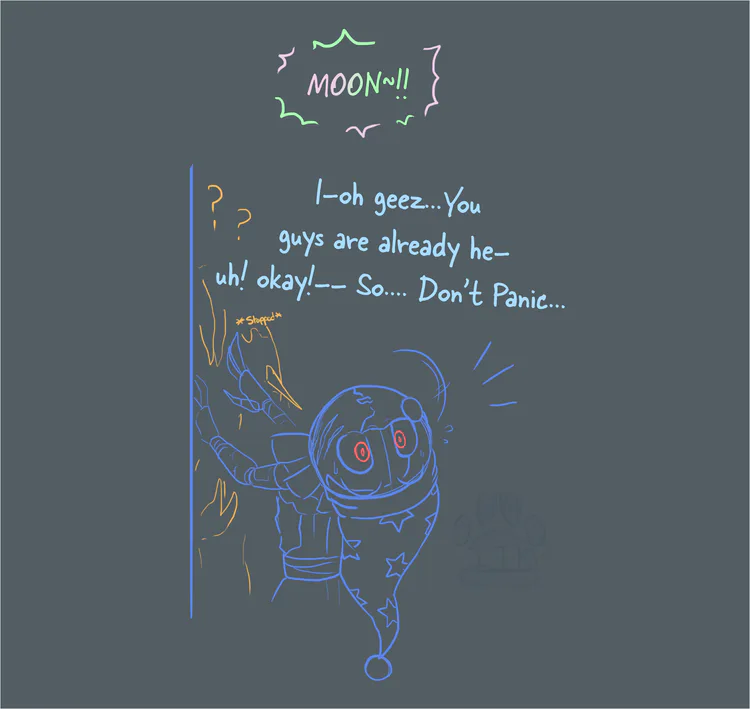 MOON~!!
? ?
I-oh geez...You
guys are already he-
uh! okay!-- So.... Don't Panic...
*Stopped*